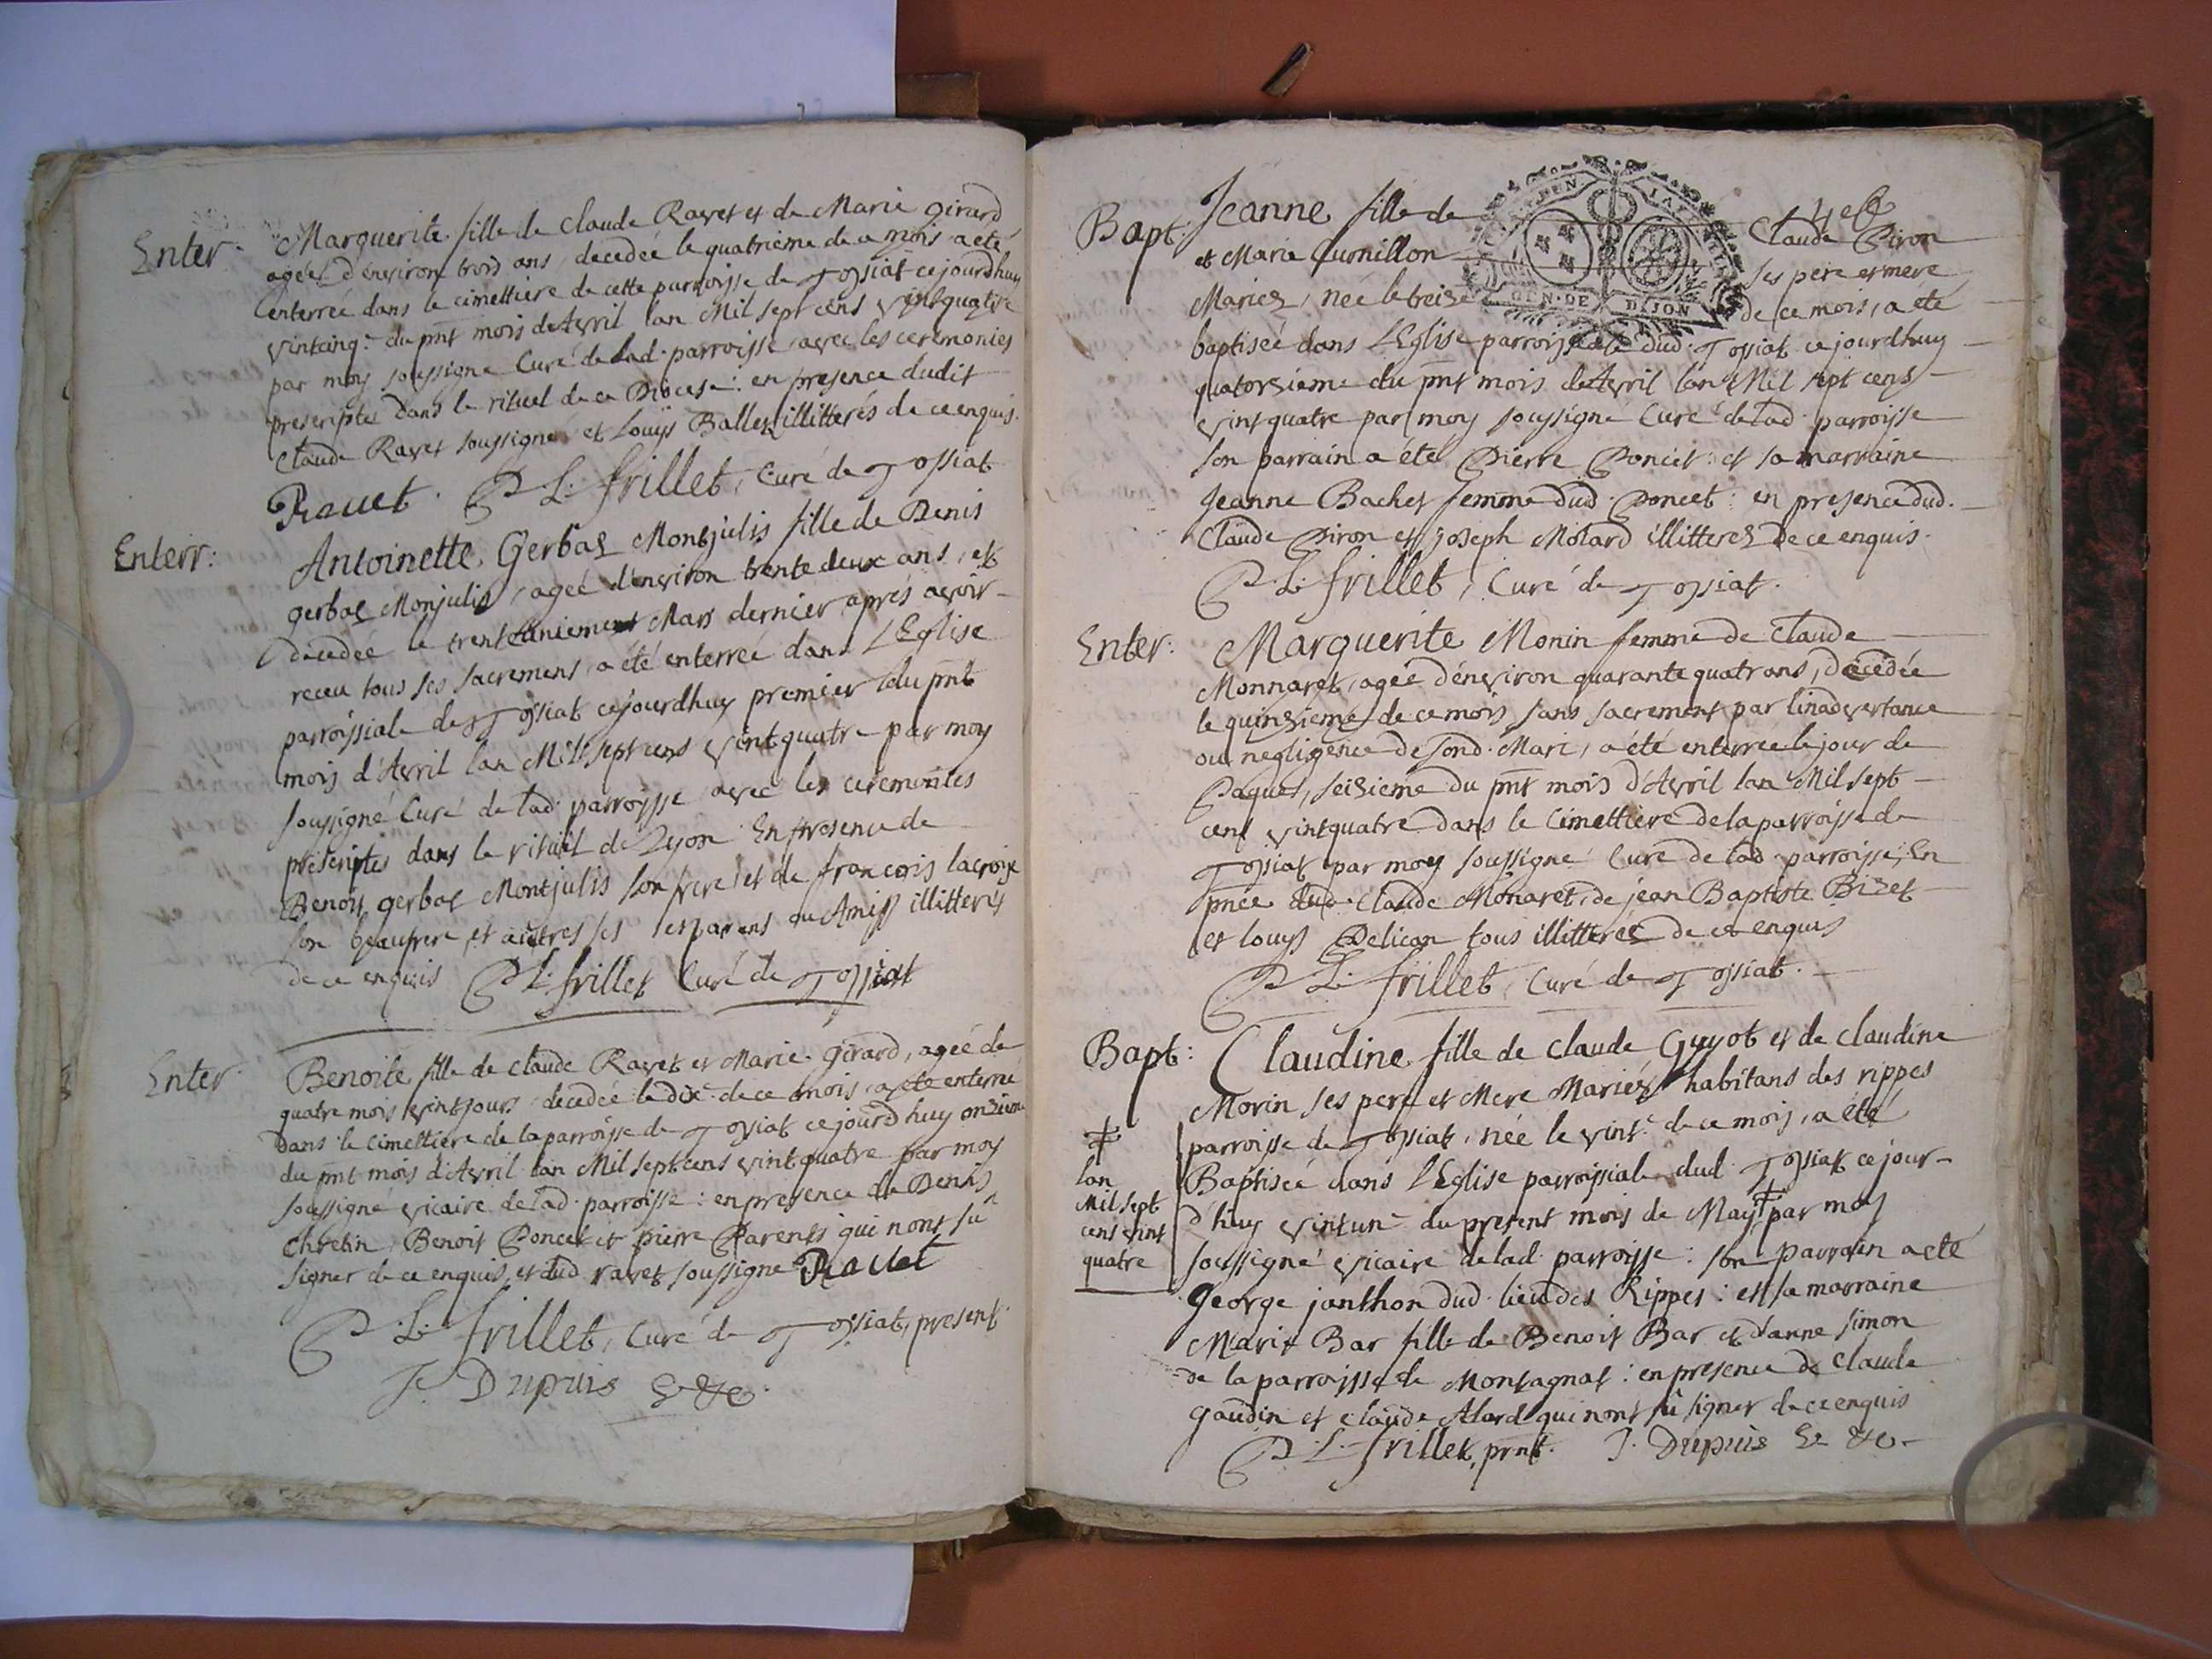 Enter.
Marguerite fille de Claude Ravet et de Marie Girard
agéé d'environ trois ans, decedée le quatrieme de ce mois a eté
enterrée dans le cimettiere de cette parroisse de Tossiat ce jourdhuy
vintcinq.e du pnt mois de Avril lan Mil sept cens vintquatre
par moy soussigné Curé de lad. parroisse avec les ceremonies
prescriptes dans le rituel de ce Diocese: en presence dudit
Claude Ravet soussigné et Louys Ballet illitterés de ce enquis.
Rauet. P L. frillet, Curé de Tossiat
Enterr:
Antoinette Gerbas Montjulis fille de Denis
gerbas Monjulis, agéé d'environ trente deux ans, et
decedée le trent Mars dernier aprés avoir
receu tous ses sacremens, a été enterrée dans L'Eglise
parroissiale de Tossiat cejourdhuy premier du pnt
mois d'Avril lan Mil sept cens vintquatre par moy
soussigné Curé de lad. parroisse avec les ceremonies
prescriptes dans le rituel de Lyon En presence de
Benoit gerbas Montjulis son frere et de francois lacroix
son beaufrere, et autres ses parens ou Amis illitterés
de ce enquis P L. frillet Curé de Tossiat
Enter.
Benoite fille de Claude Ravet et Marie Girard, agéé de
quatre mois vint jours decedée le dix.e de ce mois a eté enterré
dans le Cimettiere de la parroisse de Tossiat ce jourd huy onzieme
du pnt mois d'Avril lan Mil sept cens vint quatre par moy
soussigné vicaire de lad. parroisse: en presence de Denis
Chretin, Benoit Poncet et pierre Parents qui nont su
signer de ce enquis, et dud ravet soussigne Rauet
P. L. frillet, Curé de Tossiat, present.
J. Dupuis &c.
Bapt:
Jeanne fille de Claude Piron
et Marie Curnillon ses pere et mere
Mariez, née le treize de ce mois, a été
GEN. DE DIJON
baptisée dans L'Eglise parroissiale dud. Tossiat ce jourdhuy
quatorzieme du pnt mois de Avril lan Mil sept cens
vint quatre par moy soussigné Curé de lad. parroisse
son parrain a été Pierre Poncet: et sa marraine
Jeanne Bachet femme dud. Poncet: en presence dud.
Claude Piron et Joseph Motard illitterez de ce enquis.
P. L. frillet, Curé de Tossiat.
Enter:
Marguerite Monin femme de Claude
Monnaret, agéé d'environ quarante quatr ans, decedée
le quinzieme de ce mois sans sacremens par linadvertance
ou negligence de sond. Mari, a été enterrée le jour de
Paques, seizieme du pnt mois d'Avril lan Mil sept
cens vintquatre dans le Cimettiere de la parroisse de
Tossiat par moy soussigné Curé de lad. parroisse, En
pnce dud. Claude Monaret, de jean Baptiste Bizet
et louys Pelican tous illitterez de ce enquis
P L. frillet, Curé de Tossiat.
Bapt:
Claudine fille de Claude Guyot et de Claudine
Morin ses pere et Mere Mariéz habitans des rippes
parroisse de Tossiat, née le vint.e de ce mois, a été
Baptisée dans l'Eglise parroissiale dud. Tossiat ce jour-
d'huy vintun.e du present mois de May ‡ par moy
‡ lan
Mil sept
cens vint
quatre
soussigné vicaire de lad. parroisse: son parrain a eté
George janthon dud. lieu des Rippes: et sa marraine
Marie Bar fille de Benoit Bar et d'anne simon
de la parroisse de Montagnat: en presence de Claude
Gaudin et Claude Alard qui nont sû signer de ce enquis
P. L. frillet, prnt. J. Dupuis &c.